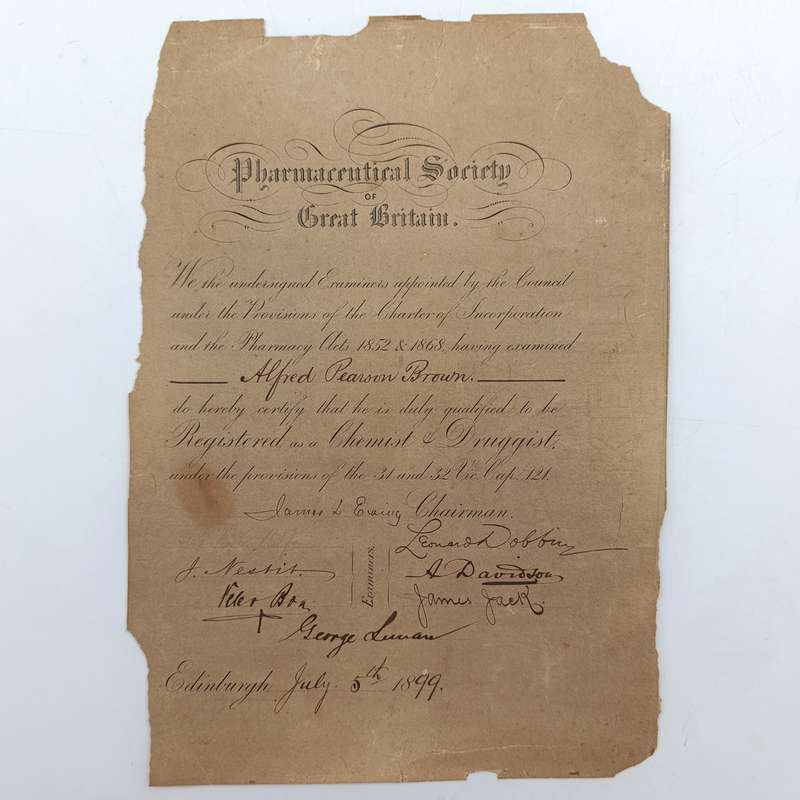 Pharmaceutical Society
OF
Great Britain.
We the undersigned Examiners appointed by the Council
under the Provisions of the Charter of Incorporation
and the Pharmacy Acts, 1852 & 1868, having examined
Alfred Pearson Brown.
do hereby certify that he is duly qualified to be
Registered as a Chemist & Druggist,
under the provisions of the 31 and 32 Vic. Cap. 121.
James L Ewing Chairman.
Leonard Dobbin
J. Nesbit. Examiners. A Davidson
Peter Boa James Jack.
George
Edinburgh July 5th 1899.